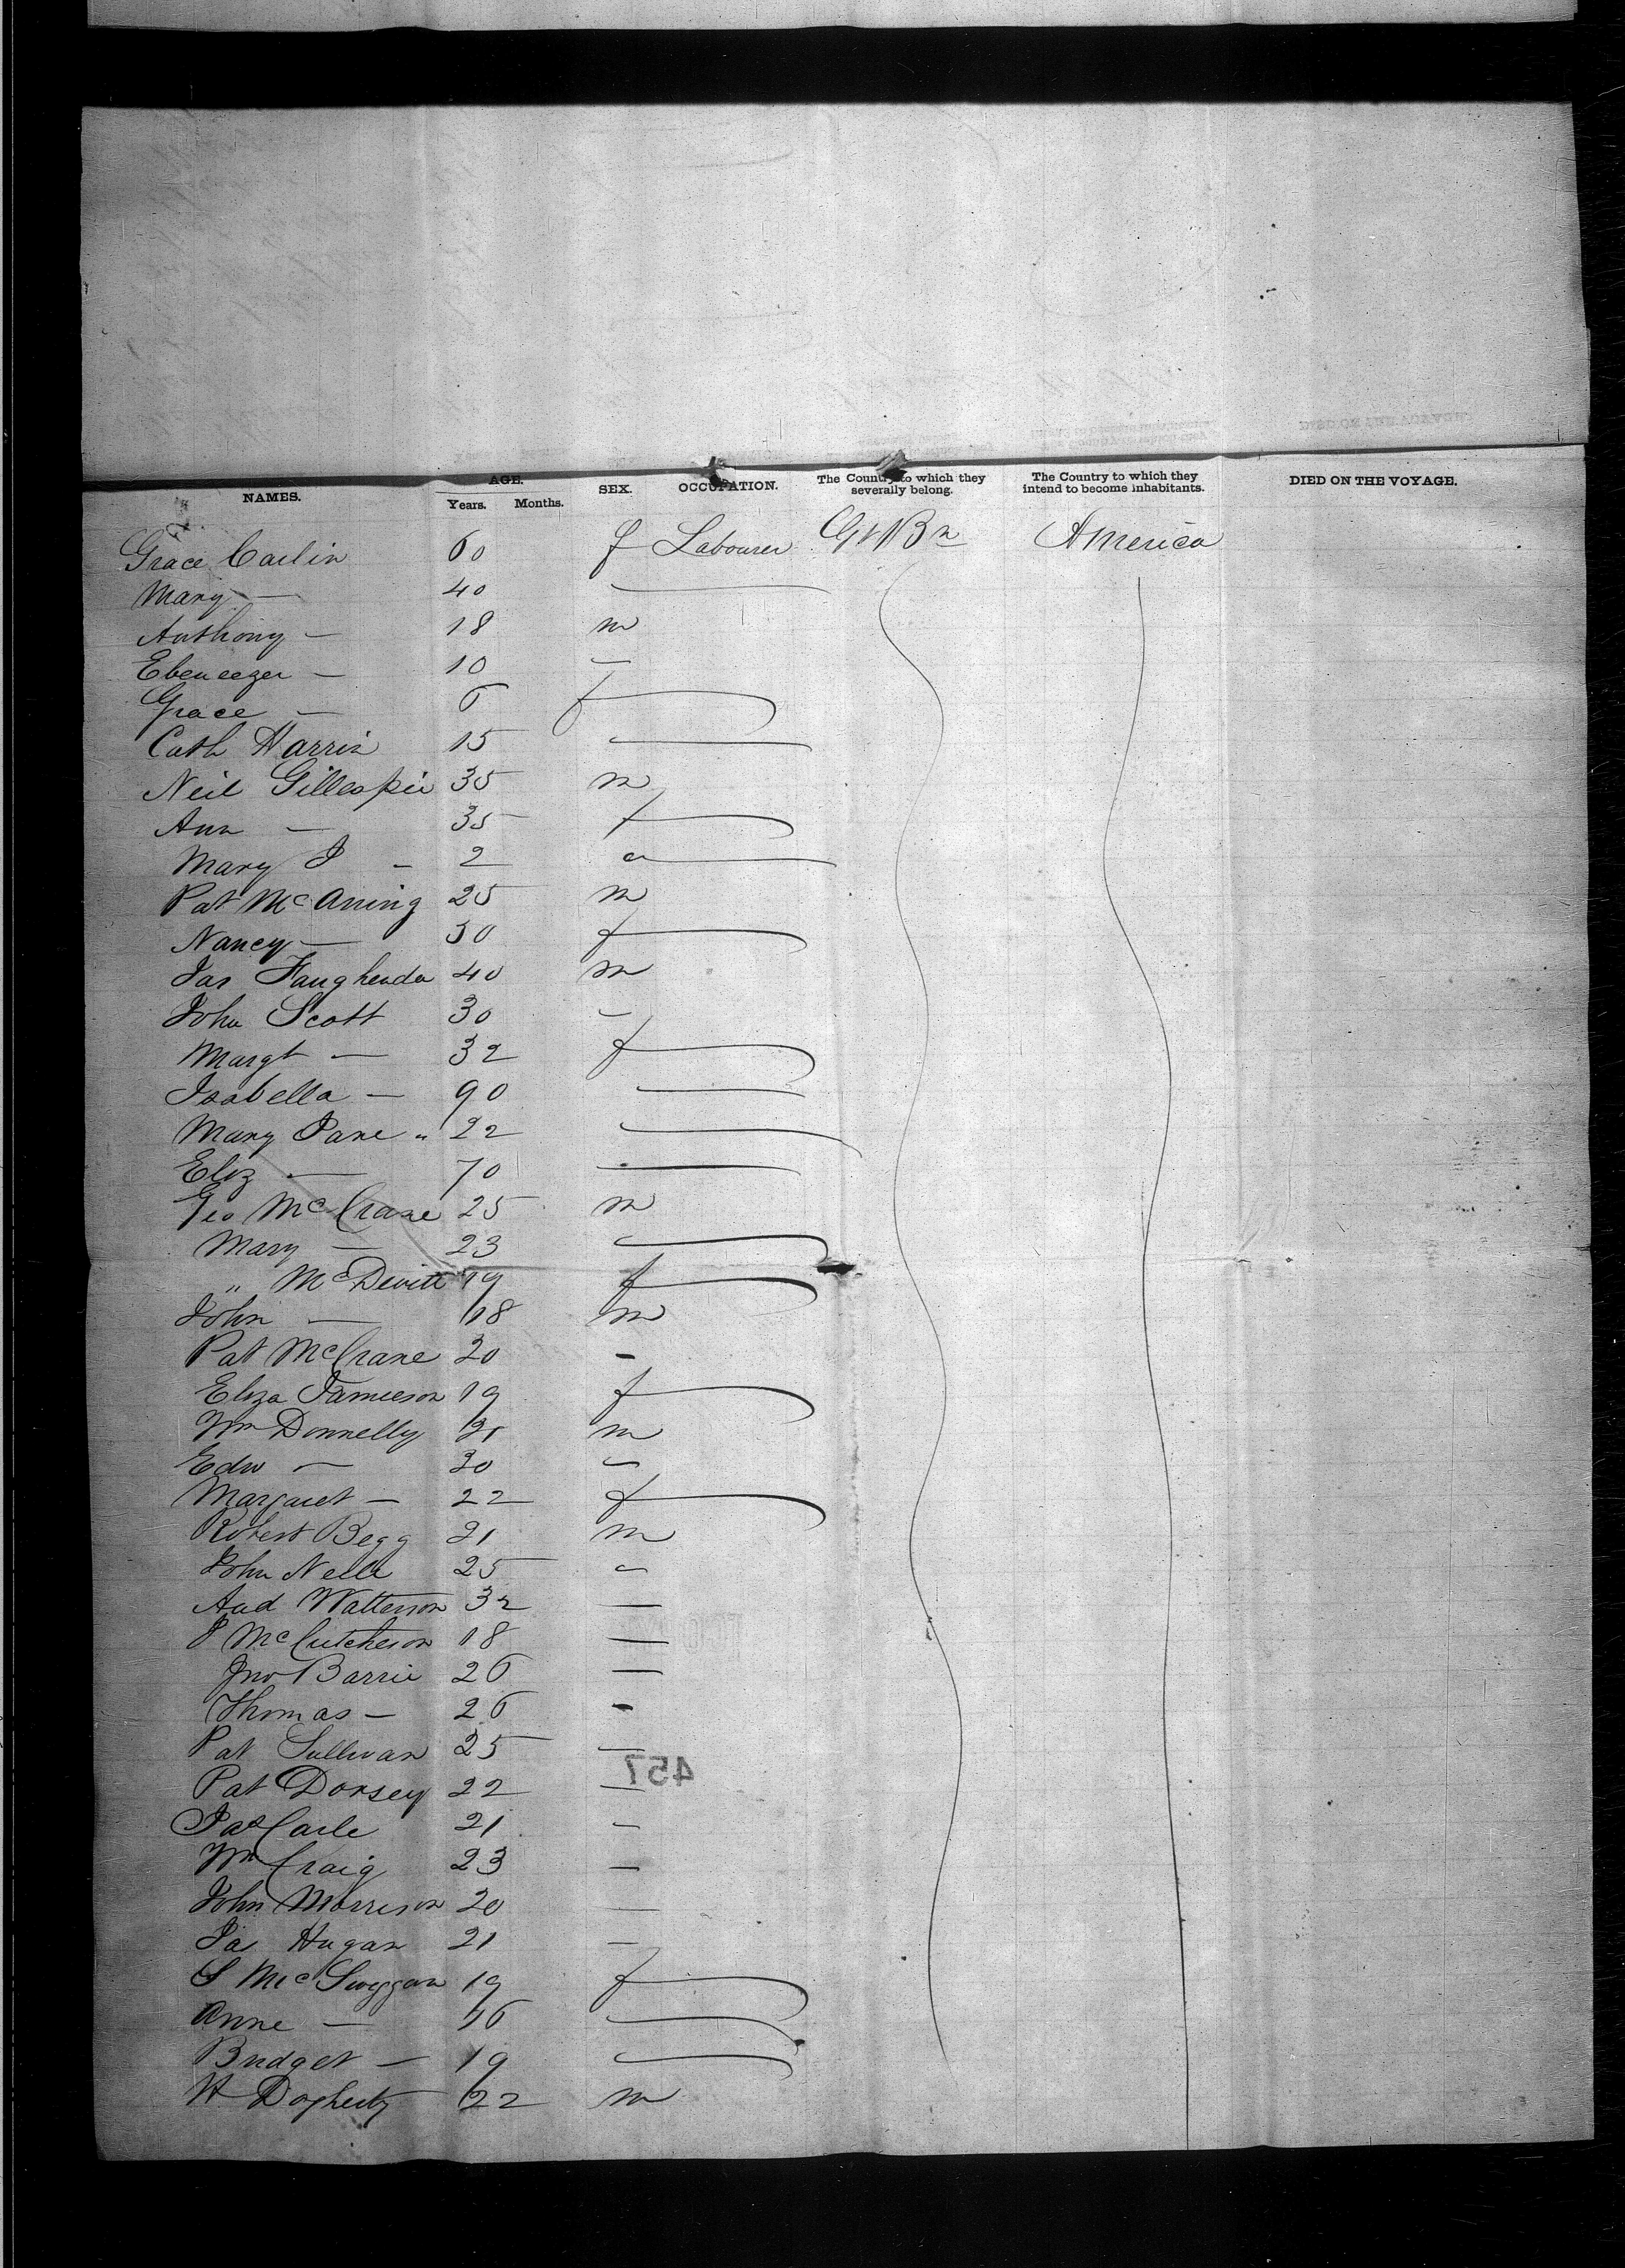 NAMES. AGE. Years. Months. SEX. OCCUPATION. The Country to which they severally belong. The Country to which they intend to become inhabitants. DIED ON THE VOYAGE.
Grace Carlin 60 f Labourer Gt Bn America
Mary — 40 —
Anthony — 18 m
Ebeneezer — 10 —
Grace — 6 f
Cath Harrin 15 —
Neil Gillespie 35 m
Ann — 35 f
Mary J — 2
Pat McAning 25 m
Nancy — 30 f
Jas 40 m
John Scott 30 —
Margt — 32 f
Isabella — 90 —
Mary Jane " 22 —
Eliz — 70 —
Geo McCrane 25 m
Mary — 23 —
" McDevitt 19 f
John — 18 m
Pat McCrane 20 -
Eliza Jamieson 19 f
Wm Donnelly 21 m
Edw — 30 —
Margaret — 22 f
Robert Begg 21 m
John Neill 25 —
And Watterson 32 —
J McCutcheson 18 —
Jno Barrie 26 —
Thomas — 26 -
Pat Sullivan 25 —
457
Pat Dorsey 22 —
Pat Carle 21 —
Wm Craig 23 —
John Morrison 20 —
Jas Hugan 21 —
S McSwiggan 19 f
Anne — 16 —
Bridget — 19 —
H Dogherty 22 m